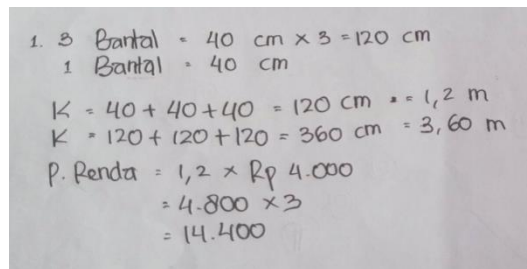 1. 3 Bantal = 40 cm x 3 = 120 cm
1 Bantal = 40 cm
K = 40 + 40 + 40 = 120 cm = 1,2 m
K = 120 + 120 + 120 = 360 cm = 3,60 m
P. Renda = 1,2 x Rp 4.000
= 4.800 x 3
= 14.400